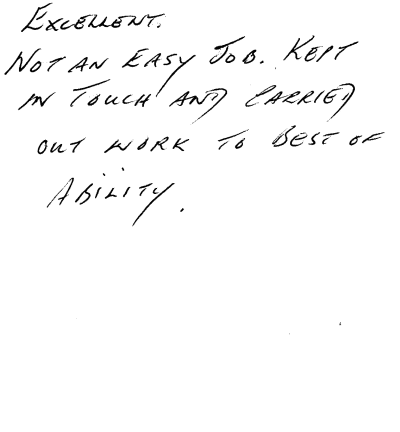 EXCELLENT.
NOT AN EASY JOB. KEPT
IN TOUCH AND CARRIED
OUT WORK TO BEST OF
ABILITY.